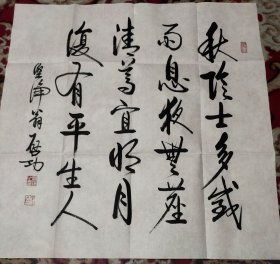 秋陰士多感
雨息夜無塵
清尊宜明月
復有平生人
堅淨翁啟功